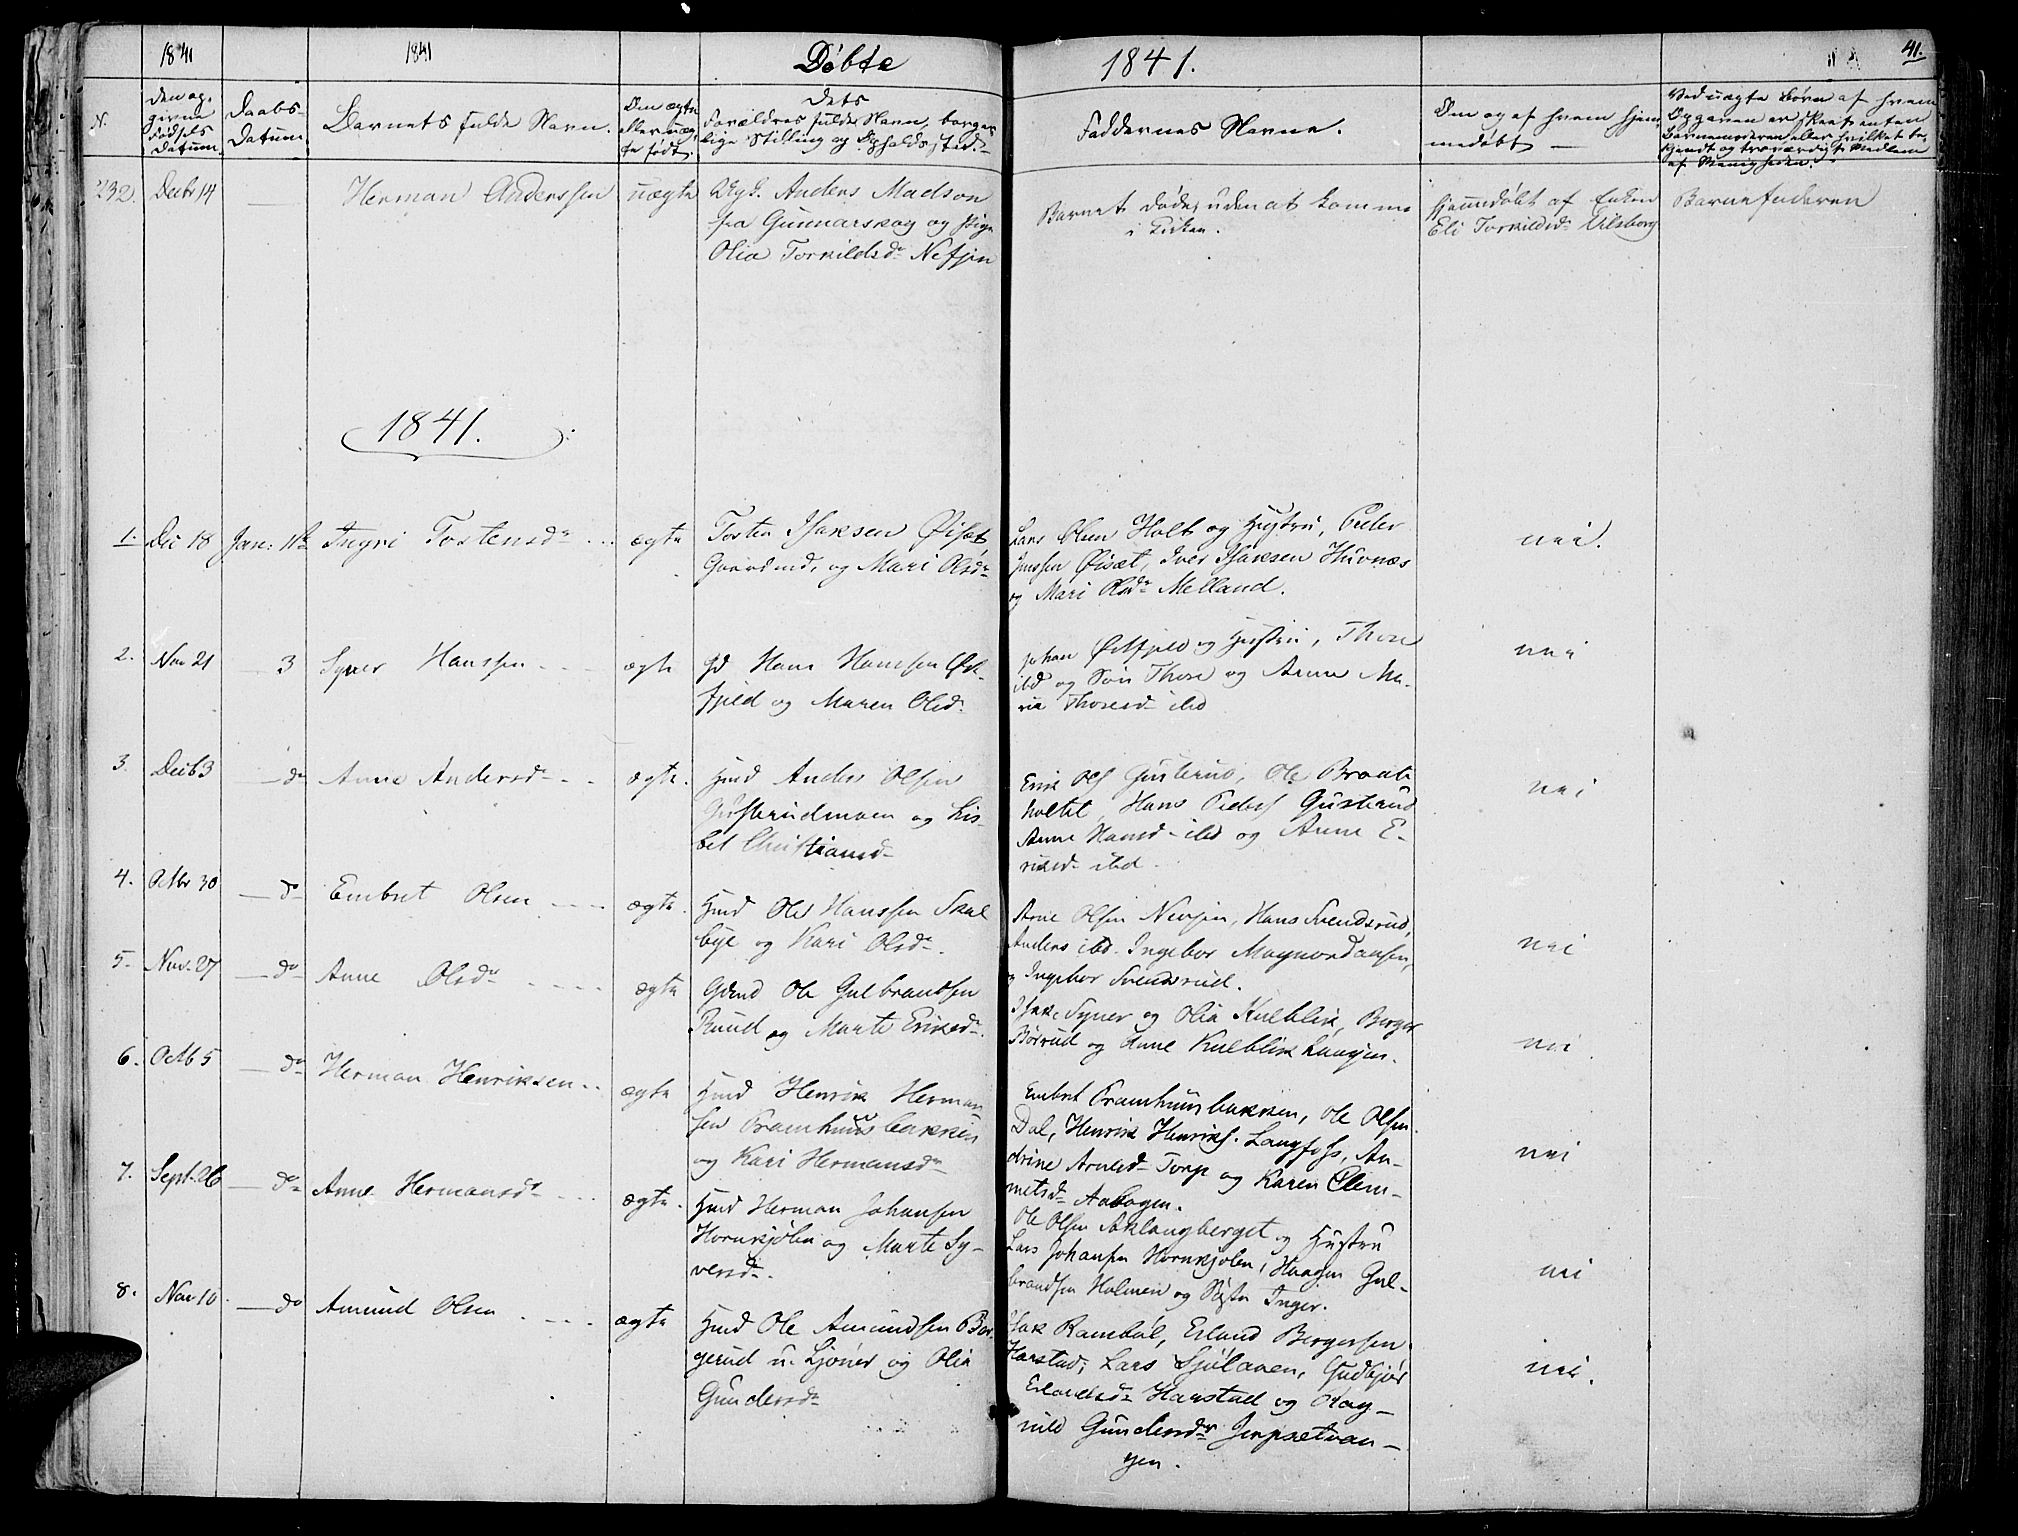 1841
1841
Døbte
1841.
41.
N.
Den op-
givne
Fødsels
Datum.
Daabs-
Datum
Barnets fulde Navn.
Om ægte
eller uæg-
te født.
Dets
Forældres fulde Navn, borger-
lige Stilling og Opholdssted.
Faddernes Navne.
Om og af hvem hjem-
medøbt
Ved uægte Børn af hvem
Opgaven er skeet enten
Barnemoderen eller hvilket be-
kjendt og troværdigt Medlem
af Menigheden.
232. Decbr 14 — Herman Anderssen uægte
Anders Madson
fra Gunnarskog og Pige
Olia Torkildsdr Nefjen
Barnet døde, uden at komme
i Kirken.
hjemmedøbt af Enken
Eli Torkildsdr Vilsborg
Barnefaderen
1841.
1. Dec 18 Jan: 1ste Ingri Tostensdr ægte
Tosten Isaksen Øiset
Gaardmd, og Mari Olsdr
Lars Olsen Holt og Hustru, Peder
Jenssen Øisæt, Iver Isaksen Huvnæs
og Mari Olsdr Melland.
nei.
2. Nov 21 — 3 Syver Hanssen ægte
Gd Hans Hanssen Øst-
fjeld og Maren Olsdr
Johan Østfjeld og Hustru, Thore
ibd og Søn Thore og Anne Ma-
rie Thoresdr ibd
nei
3. Decb 3 — do Anne Andersdr ægte.
Hmd Anders Olsen
Gusterudmoen og Lis-
bet Christiansdr
Erik Ols Gusterud, Ole Braate
holtet, Hans Peders Gusterud
Anne Hansd ibd og Anne E-
riksdr ibd.
nei
4. Octbr 30 — do Embret Olsen ægte.
Hmd Ole Hanssen Skal
bye og Kari Olsdr.
Arne Olsen Nevjen, Hans Svendsrud,
Anders ibd. Ingebor Magnordaasen,
og Ingebor Svendsrud.
nei
5. Nov. 27 — do Anne Olsdr ægte
Gdmd Ole Gulbrandsen
Ruud og Marte Eriksdr.
Isak, Syver og Olia Kulblik, Berger
Børrud og Anne Kulblik Laasjen.
nei
6. Octb 5 — do Herman Henriksen ægte
Hmd Henrik Herman
sen Pramhuusbakken
og Kari Hermansdr
Embret Pramhuusbakken, Ole Olsen
Dal, Henrik Henriks. Langfoss, An-
drine Arnesdr Torp og Karen Clem-
metsdr Aabogen.
nei
7. Sept. 26 — do Anne Hermansdr ægte.
Hmd Herman Johansen
Hornkjølen og Marte Sy-
versdr.
Ole Olsen Aklangberget og Hustru
Lars Johansen Hornkjølen, Haagen Gul-
brandsen Holmen og Søster Inger.
nei
8. Nov 10 — do Amund Olsen ægte
Hmd Ole Amundsen Bør-
gerud u. Ljøner og Olia
Gundersdr
Isak Rambøl, Erland Bergersen
Harstad, Lars Sjølaven, Gudbjør
Erlandsdr Harstad og Rag-
nild Gundersdr Jerpsetvan-
gen.
nei.